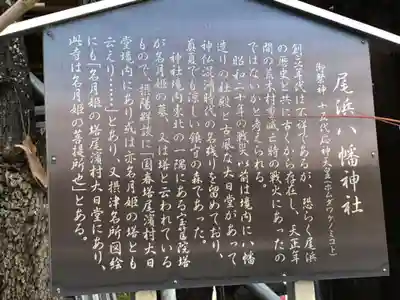 尾浜八幡神社
御祭神 十五代応神天皇(ホムダワケノミコト)
創立年代は不詳であるが、恐らく尾浜
の歴史と共に古くから存在し、天正年
間の荒木村重滅亡時の戦火にあったの
ではないかと考えられる。
昭和二十年の戦災以前は境内に八幡
造りの社殿と古風な大日堂があって
神仏混淆時代の名残りを留めており、
真夏でも涼しい鎮守の森であった。
神社境内東北の一隅にある宝篋印塔
が名月姫の墓、又は塔と云われている
もので、摂陽群談に「国春塔尾濱村大日
堂境内にあり或は亦名月姫の塔とも
云えり……」とあり、又摂津名所図絵
にも「名月姫の塔尾濱村大日堂にあり、
此寺は名月姫の菩提所也」とある。